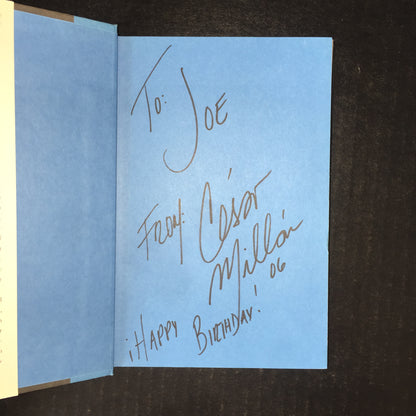 To: JOE
FROM: César
Millán
06
¡HAPPY BIRTHDAY!